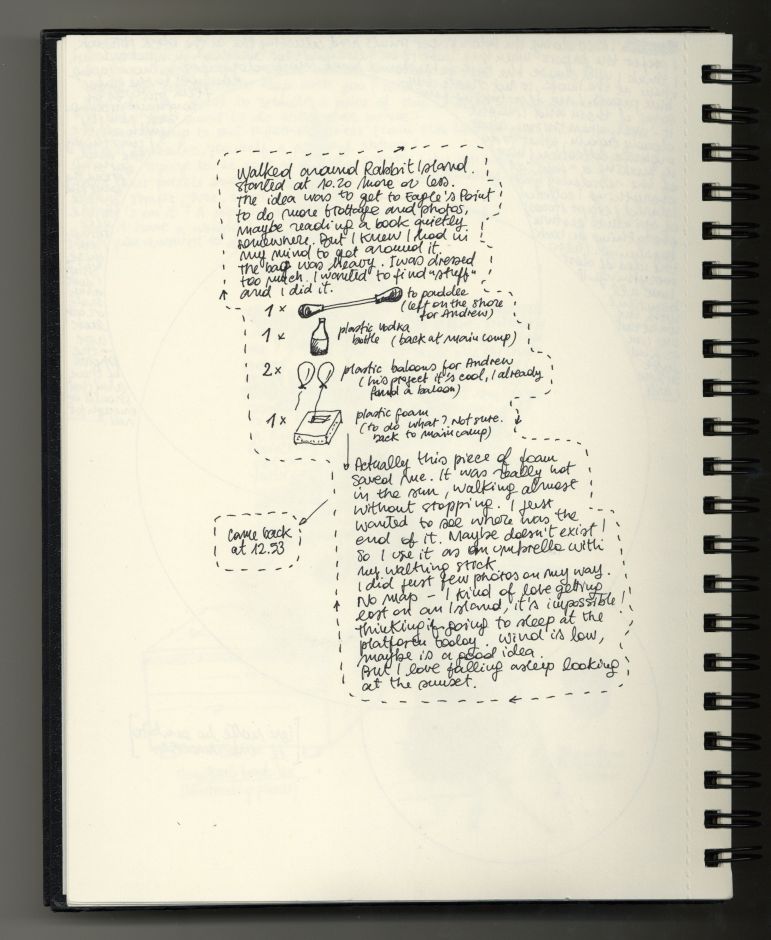 Walked around Rabbit Island.
started at 10.20 more or less.
The idea was to get to Eagle's Point
to do more frottage and photos,
maybe reading a book quietly
somewhere. But I knew I had in
my mind to get around it.
The bag was heavy. I was dressed
too much. I wanted to find "stuff"
and I did it.
1 x to paddle
(left on the shore
for Andrew)
1 x plastic vodka
bottle (back at main camp)
2 x plastic baloons for Andrew
(his project it's cool, I already
found a baloon)
1 x plastic foam
(to do what? Not sure.
back to main camp)
Actually this piece of foam
saved me. It was really hot
in the sun, walking almost
without stopping. I just
wanted to see where was the
end of it. Maybe doesn't exist!
So I use it as an umbrella with
my walking stick
I did just few photos on my way.
No map – I kind of love getting
lost on an Island, it's impossible!
Thinking if going to sleep at the
platform today. Wind is low,
maybe is a good idea.
But I love falling asleep looking
at the sunset.
Came back
at 12.53